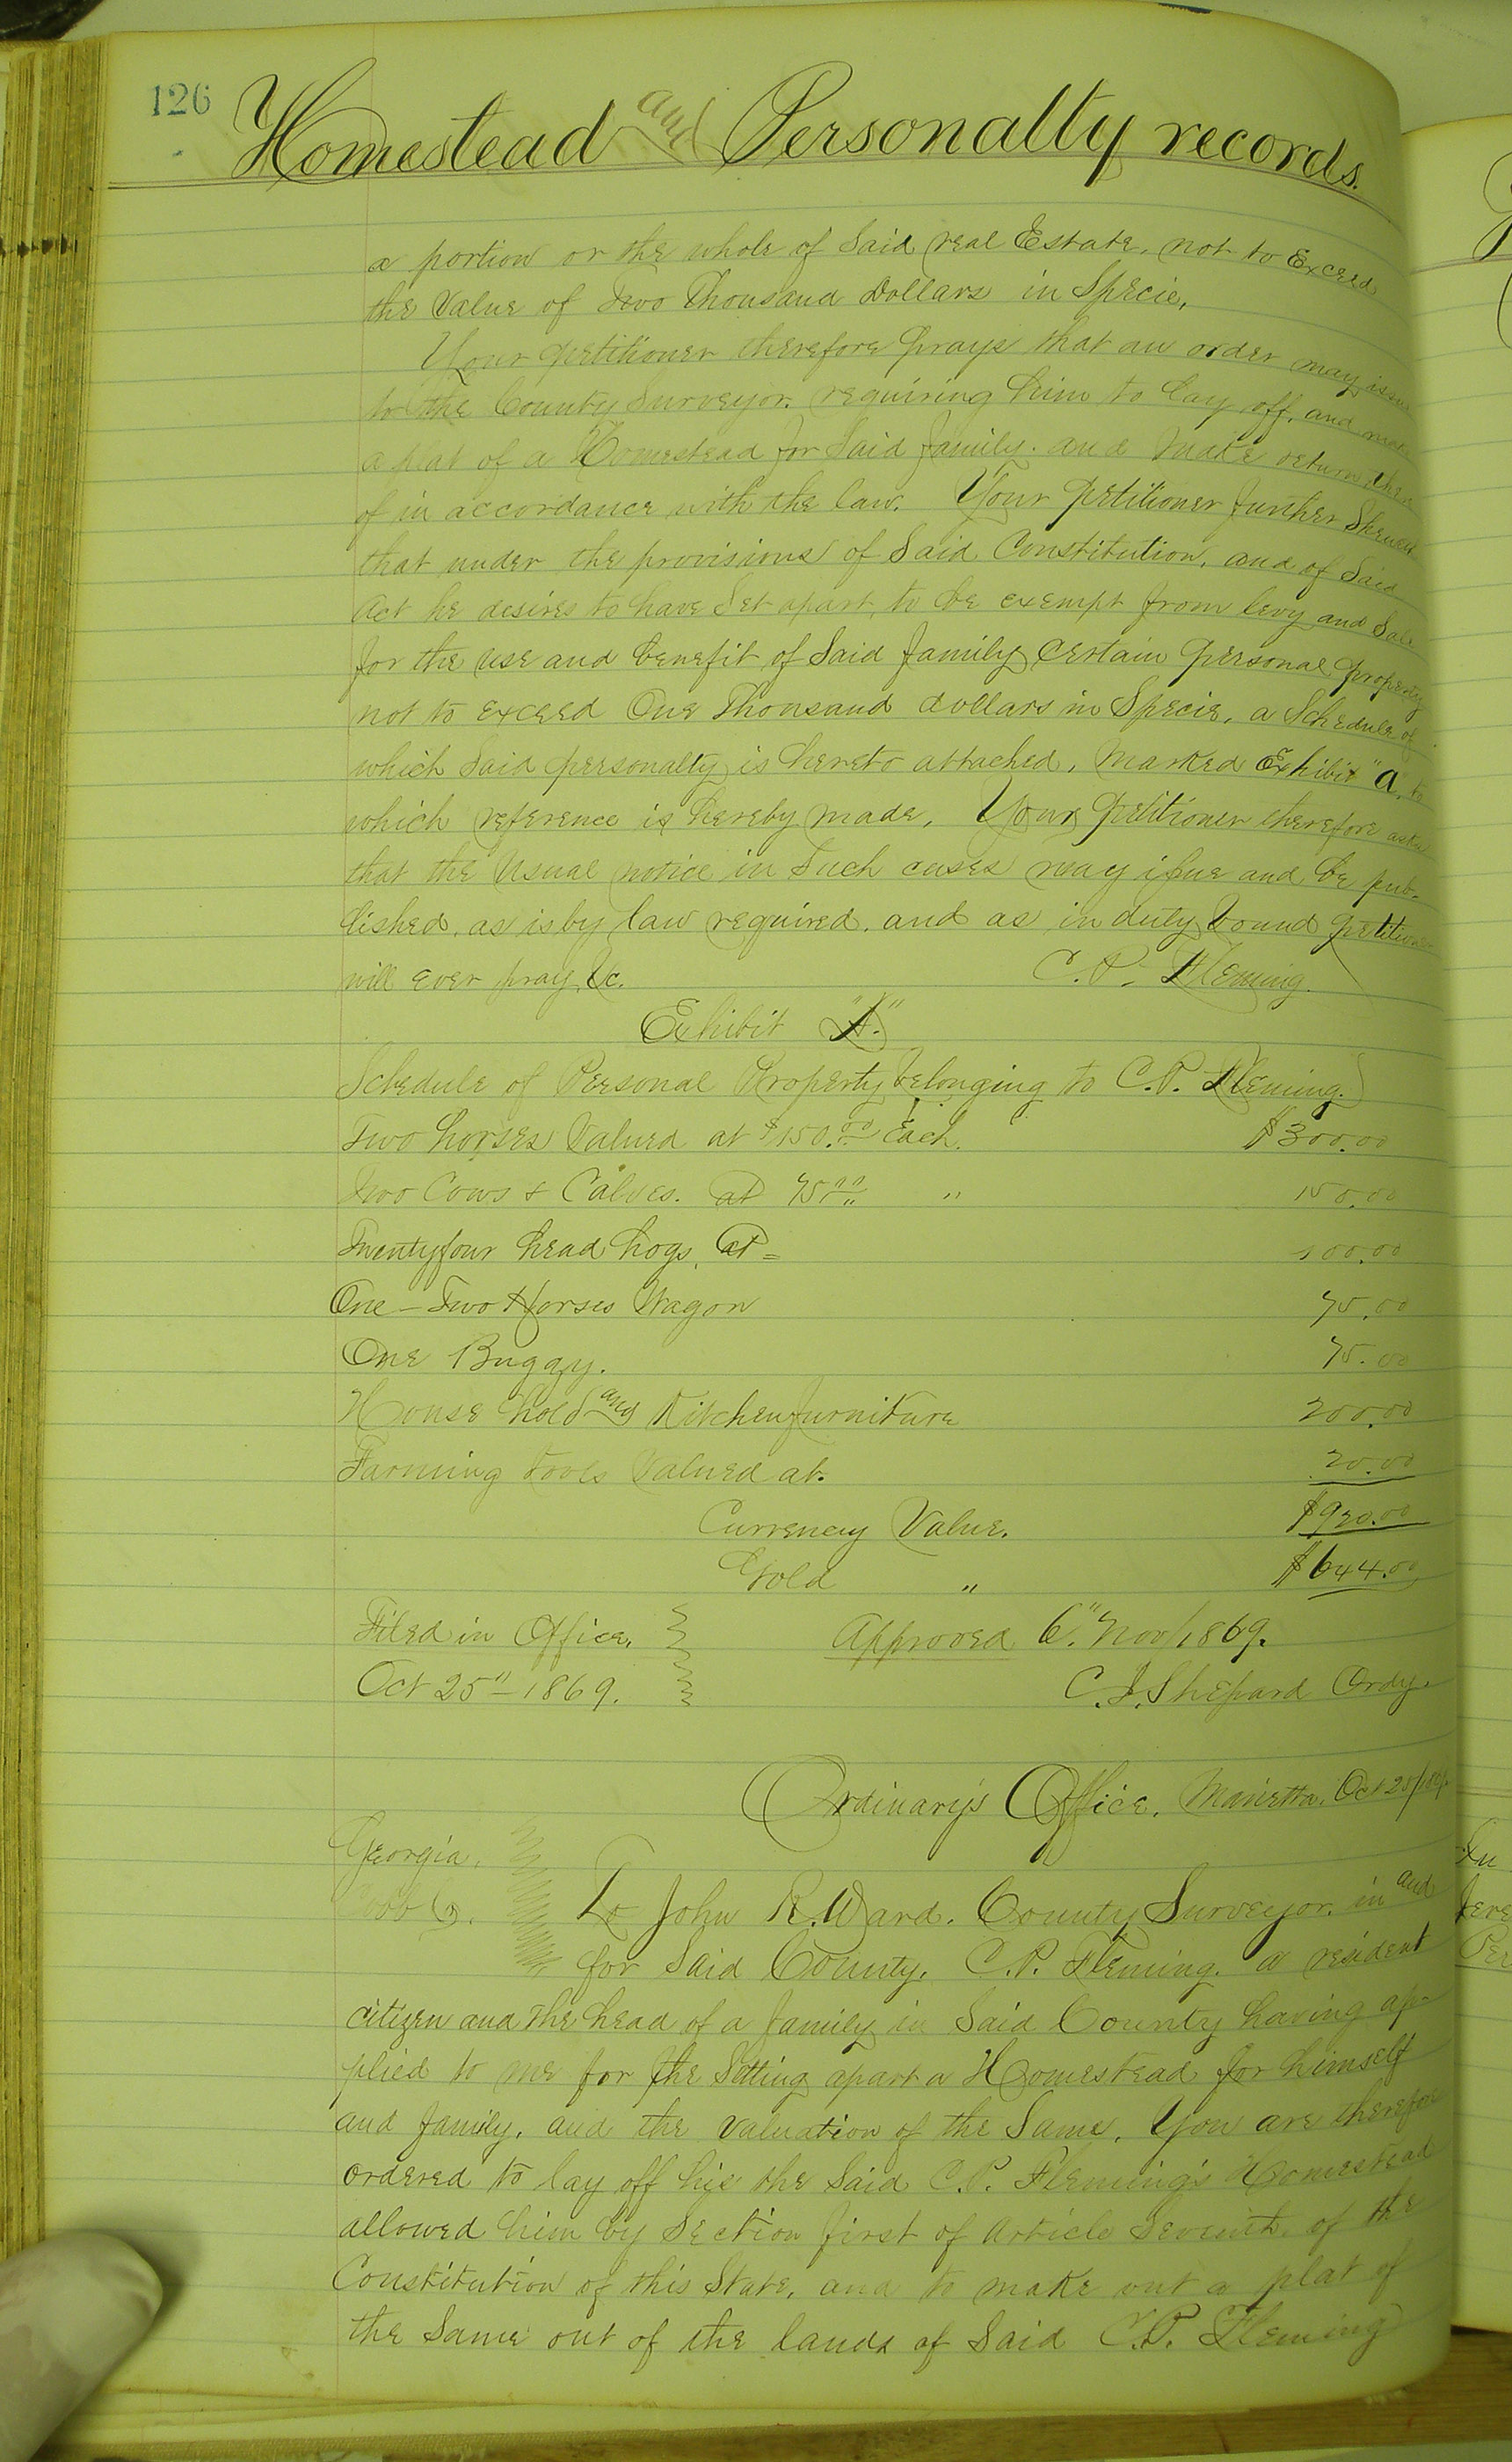 126
Homestead and Personalty records.
a portion or the whole of Said real Estate, not to Exceed
the Value of Two Thousand Dollars in Specie,
Your petitioner therefore prays that an order may issue
to the County Surveyor. requiring him to lay off, and make
a plat of a Homestead for Said family. and make return there
of in accordance with the law. Your petitioner further Sheweth
that under the provisions of Said Constitution, and of Said
Act he desires to have Set apart, to be exempt from levy and Sale
for the use and benefit of Said family certain personal property
not to exceed One Thousand dollars in Specie, a Schedule of
which Said personalty is hereto attached, Marked Exhibit "a" to
which reference is hereby made, Your petitioner therefore asks
that the Usual notice in Such cases may issue and be pub-
lished, as is by law required, and as in duty bound petitioner
will ever pray, &c. C. P. Fleming.
Exhibit "A."
Schedule of Personal Property belonging to C.P. Fleming.
Two horses Valued at $150.00 Each. $300.00
Two Cows & Calves. at 75.00 " 150.00
Twentyfour head hogs, at = 100.00
One - Two Horses Wagon 75.00
One Buggy. 75.00
House hold and Kitchen furniture 200.00
Farming tools Valued at. 20.00
Currency Value. $920.00
Gold " $644.00
Filed in Office, Approved 6" Nov/1869.
Oct 25" 1869. C.J. Shepard Ordy.
Ordinary's Office, Marietta, Oct 25/
Georgia,
Cobb Co. To John R. Ward. County Surveyor, in and
for Said County, C.P. Fleming. a resident
citizen and the head of a family in Said County having ap-
plied to me for the Setting apart a Homestead for himself
and family, and the valuation of the Same, You are therefore
ordered to lay off his the Said C.P. Fleming's Homestead
allowed him by Section first of Article Seventh of the
Constitution of this State, and to make out a plat of
the Same out of the lands of Said C.P. Fleming